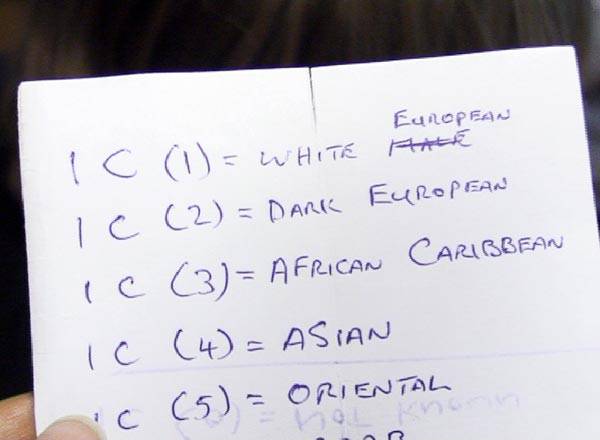 EUROPEAN
IC (1) = WHITE MALE
IC (2) = DARK EUROPEAN
IC (3) = AFRICAN CARIBBEAN
IC (4) = ASIAN
IC (5) = ORIENTAL
= not known